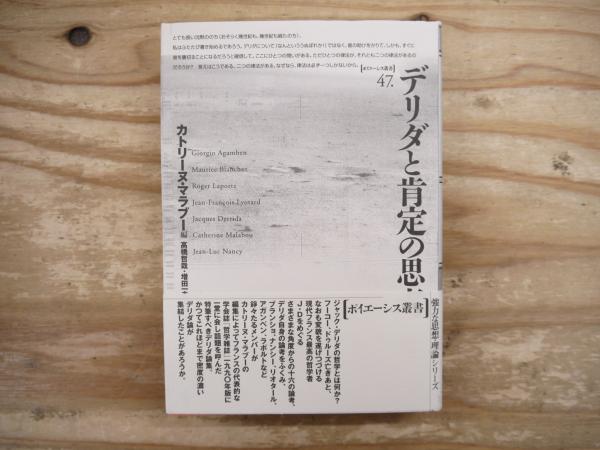 とても長い沈黙ののち(おそらく幾世紀も、幾世紀も経たのち)、
私はふたたび書き始めるであろう。デリダについて(なんといううぬぼれか!)ではなく、彼の助けをかりて、しかも、すぐに
彼を裏切ることになるだろうと確信して。ここにひとつの問いがある。ただひとつの律法が、それとも二つの律法があるの
だろうか? 答えはこうである。二つの律法がある。なぜなら、律法は必ず一つしかないから。
[ポイエーシス叢書]
47.
デリダと肯定の思
カトリーヌ・マラブー編
高橋哲哉・増田一
Giorgio Agamben
Maurice Blanchot
Roger Laporte
Jean-François Lyotard
Jacques Derrida
Catherine Malabou
Jean-Luc Nancy
[ポイエーシス叢書]
強力な思想〈理論〉シリーズ
ジャック・デリダの哲学とは何か?
フーコー、ドゥルーズ亡きあと、
なおも変貌を遂げつづける
現代フランス最高の哲学者
J・Dをめぐる
さまざまな角度からの十六の論考。
デリダ自身の論考をふくみ、
ブランショ、ナンシー、リオタール、
アガンベン、ラポルトなど
錚々たるメンバーが
カトリーヌ・マラブーの
編集によってフランスの代表的な
学会誌「哲学雑誌」一九九〇年版に
一堂に会し話題を呼んだ
特筆すべきデリダ論集。
かつてこれほどまで密度の濃い
デリダ論が
集結したことがあろうか。